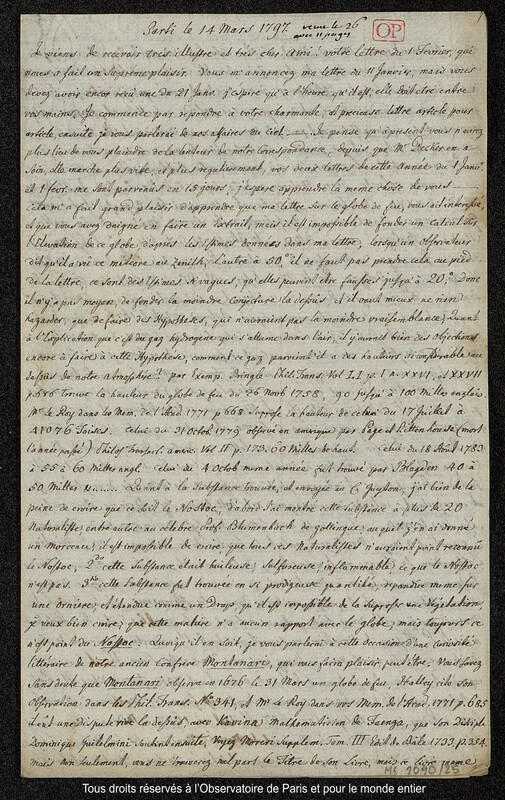 Sarbi le 14 Mars 1797. venue le 26
avec 11 pages
OP
1
Je viens de recevoir très illustre et très cher Ami! votre lettre du 1 Fevrier, qui
nous a fait un Supreme plaisir. Vous m'annoncez ma lettre du 11 Janvier, mais vous
devez avoir encor reçu une du 21 Janv. j'espere qu'à l'heure qu'il est, elle doit etre entre
vos mains. Je commence par repondre à votre charmante, et precieuse lettre article pour
article, ensuite je vous parlerai de nos affaires du Ciel. Je pense qu'à present vous n'aurez
plus lieu de vous plaindre de la lenteur de notre Correspondance, depuis que Mr Decker en a
soin, elle marche plus vite, et plus regulierement, vos deux lettres de cette Année du 1 Janv.
et 1 fevr. me sont parvenues en 15 jours; j'espere apprendre la meme chose de vous
Cela m'a fait grand plaisir d'apprendre que ma lettre sur le globe de feu, vous ait interessé
et que vous avez daigné en faire un Extrait, mais il est impossible de fonder un calcul sur
l'Elevation de ce globe d'après les Estimes données dans ma lettre, lorsqu'un observateur
dit qu'il a vu ce météore au zenith, l'autre à 50° il ne faut pas prendre cela au pied
de la lettre, ce sont des Estimes si vagues, qu'elles peuvent etre fausses jusqu'à 20°. Donc
il n'y a pas moyen, de fonder la moindre Conjecture la dessus, et il vaut mieux ne rien
hazarder, que de faire des Hypotheses, qui n'auraient pas la moindre vraisemblance; Quant
à l'Explication que c'est du gaz hydrogene qui s'allume dans l'air, il y aurait bien des objections
encore à faire à cette Hypothese, comment ce gaz parvient il a des hauteurs si considerable au
dessus de notre atmosphère? par Exemp. Pringle Phil. Trans. Vol LI p. I n. XXVI, et XXVII
p. 5x6 trouve la hauteur du globe de feu du 26 Novb 1758, 90 jusqu'à 100 Milles anglois.
Mr le Roy dans les Mem. de l'Acad 1771 p 668 suppose la hauteur de celui du 17 juillet à
41076 Toises. Celui du 31 octob. 1779 observé en amerique par Page et Rittenhouse (mort
l'année passé) Philos Transact. americ. Vol. II p. 173, 60 Milles de haut. Celui du 18 Août 1783
à 55 à 60 Milles angl. Celui du 4 Octob meme année fut trouvé par Blagden 40 à
50 Milles &...... Quant à la Substance trouvée, et envoyée au C. Guyton, j'ai bien de la
peine de croire que ce soit le Nostoc, d'abord j'ai montré cette substance à plus de 20
Naturalistes, entre autre au celebre Prof. Blumenbach de gottingue, auquel j'en ai donné
un morceau; il est impossible de croire que tous ces Naturalistes n'auraient point reconnu
le Nostoc, 2do cette substance était huileuse, sulfureuse, inflammable, ce que le Nostoc
n'est pas. 3tio cette substance fut trouvée en si prodigeuse quantité, repandue meme sur
une orniere, et étendue comme un Drap, qu'il est impossible de la supposer une Vegetation.
je veux bien croire, que cette matiere n'a aucun rapport avec le globe, mais toujours ce
n'est point du Nostoc. Quoiqu'il en soit, je vous parlerai à cette occasion d'une curiosité
litteraire de notre ancien Confrere Montanari, qui vous fera plaisir peut être. Vous savez
sans doute que Montanari observa en 1676 le 31 Mars un globe de feu, Halley cite son
observation dans les Phil. Trans. No. 341, et Mr. le Roy dans vos Mem. de l'Acad. 1771 p. 685
il eut une dispute vive la dessus avec Cavina Mathematicien de Faenza, que son Disciple
Dominique Guglielmini soutint ensuite, Voyez Moreri Supplem. Tom. III Edit. de Bâle 1733, p. 354.
mais non seulement, vous ne trouverez nul part le Titre de son Livre, mais ce livre meme
MS 1090/25
Tous droits réservés à l'Observatoire de Paris et pour le monde entier